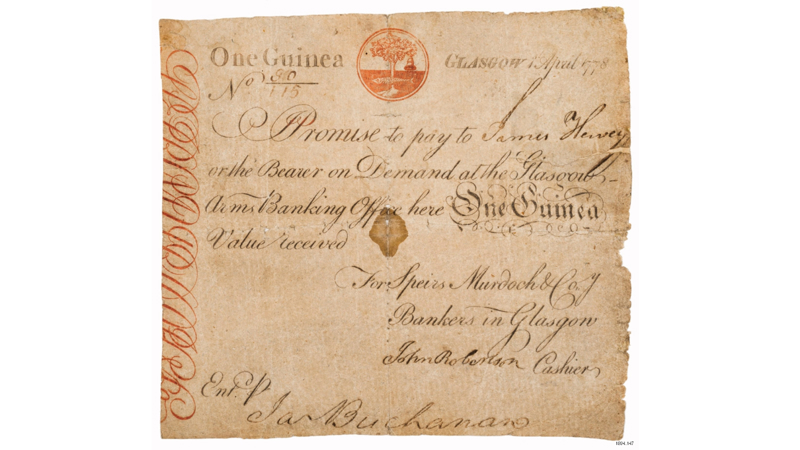 One Guinea GLASGOW 1 April 1778
No 890/115
I Promise to pay to James Hervey
or the Bearer on Demand at the Glasgow-
Arms Banking Office here One Guinea
Value received
For Speirs Murdoch & Co.y
Bankers in Glasgow
John Robertson Cashier
Ent.d p.
Ja Buchanan
1694.147